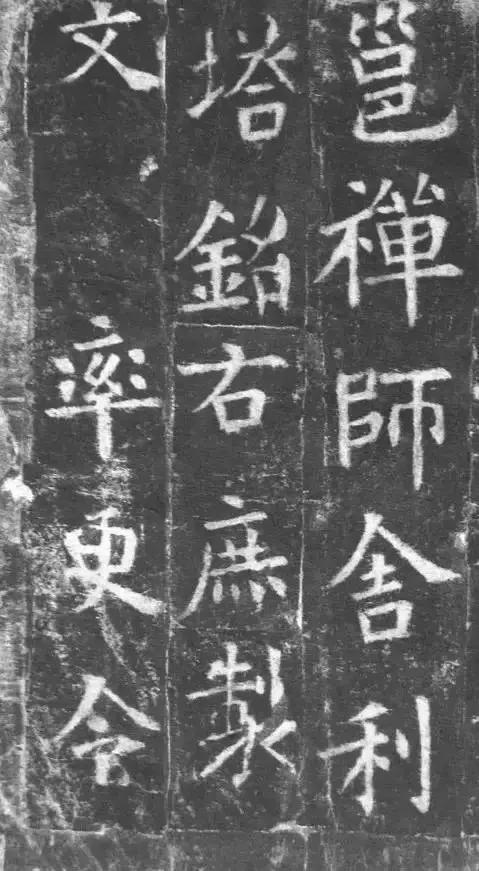 邕禪師舍利
塔銘右庶製
文 率更令